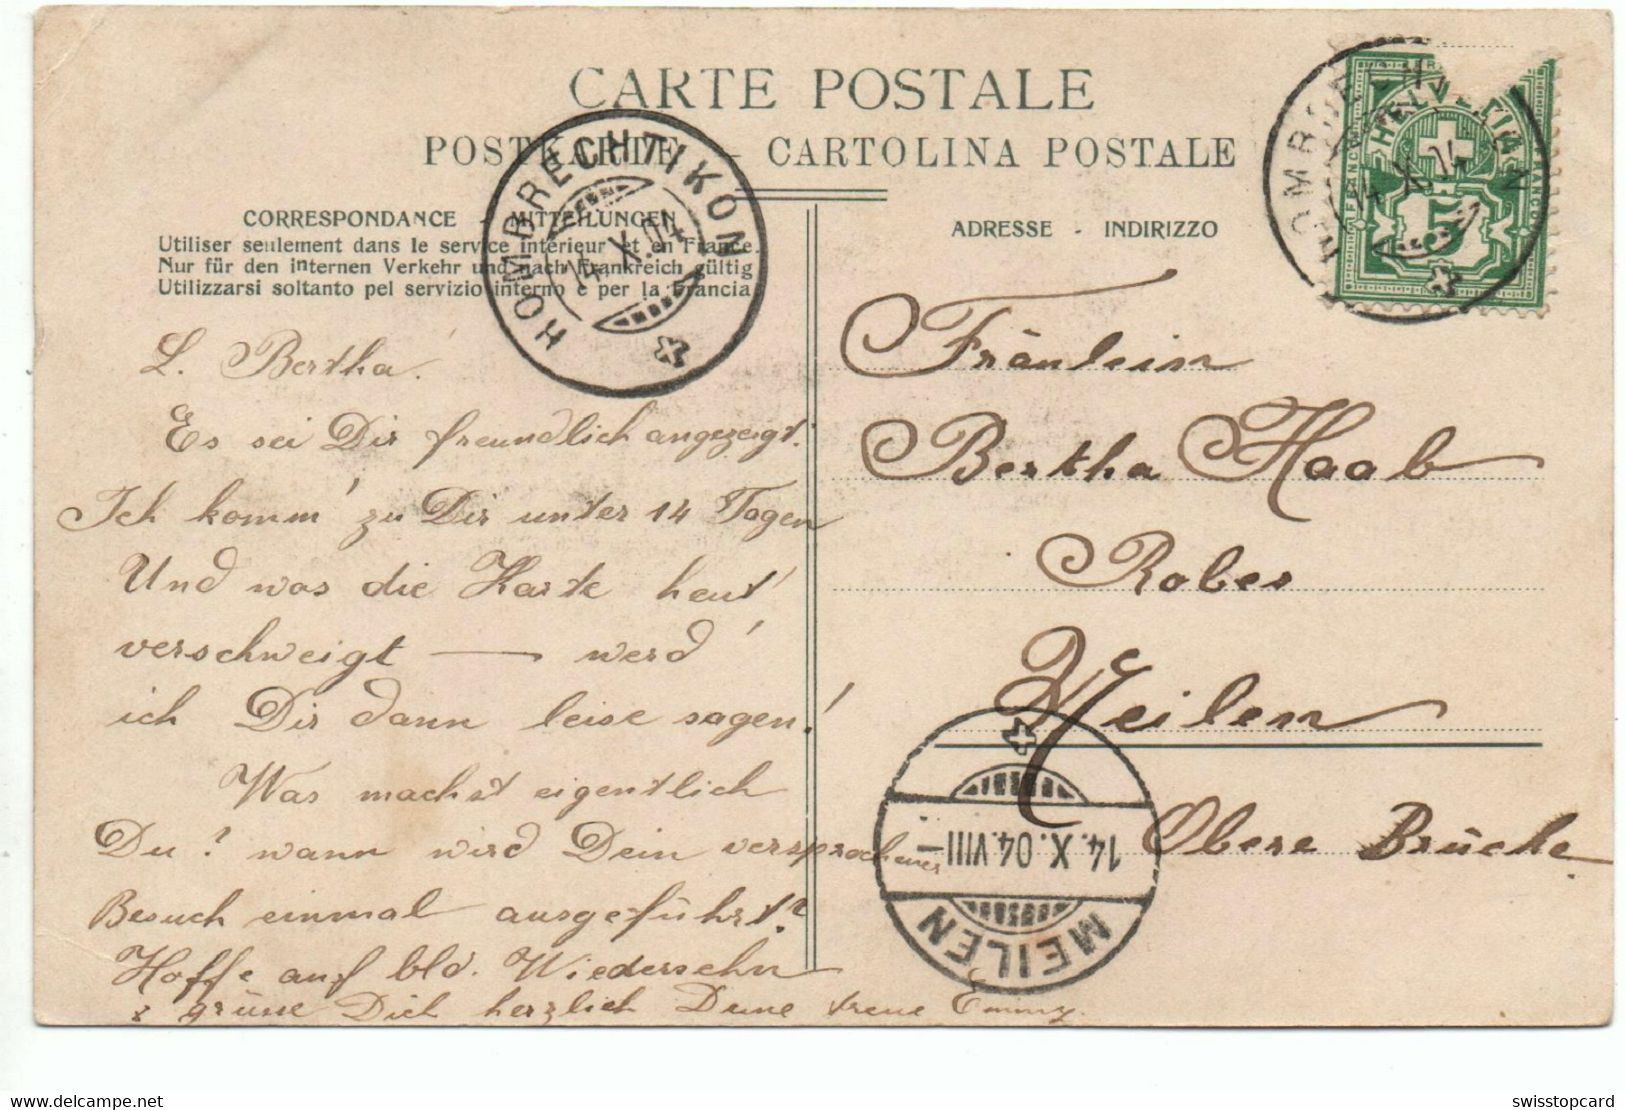 CARTE POSTALE
POSTKARTE - CARTOLINA POSTALE
CORRESPONDANCE - MITTEILUNGEN
Utiliser seulement dans le service intérieur et en France.
Nur für den internen Verkehr und nach Frankreich gültig
Utilizzarsi soltanto pel servizio interno e per la Francia
HOMBRECHTIKON
14. X. 04
L. Bertha.
Es sei Dir freundlich angezeigt.
Ich komm' zu Dir unter 14 Tagen
Und was die Karte heut'
verschweigt — werd'
ich Dir dann leise sagen!
Was machst eigentlich
Du? wann wird Dein versprochener
Besuch einmal ausgeführt?
Hoffe auf bld. Wiedersehn
& grüsse Dich herzlich Deine treue Emmy.
ADRESSE - INDIRIZZO
HELVETIA
FRANCO
5
Fräulein
Bertha Haab
Robes
Meilen
Obere Brüche.
MEILEN
14. X. 04. VIII—
www.delcampe.net
swisstopcard